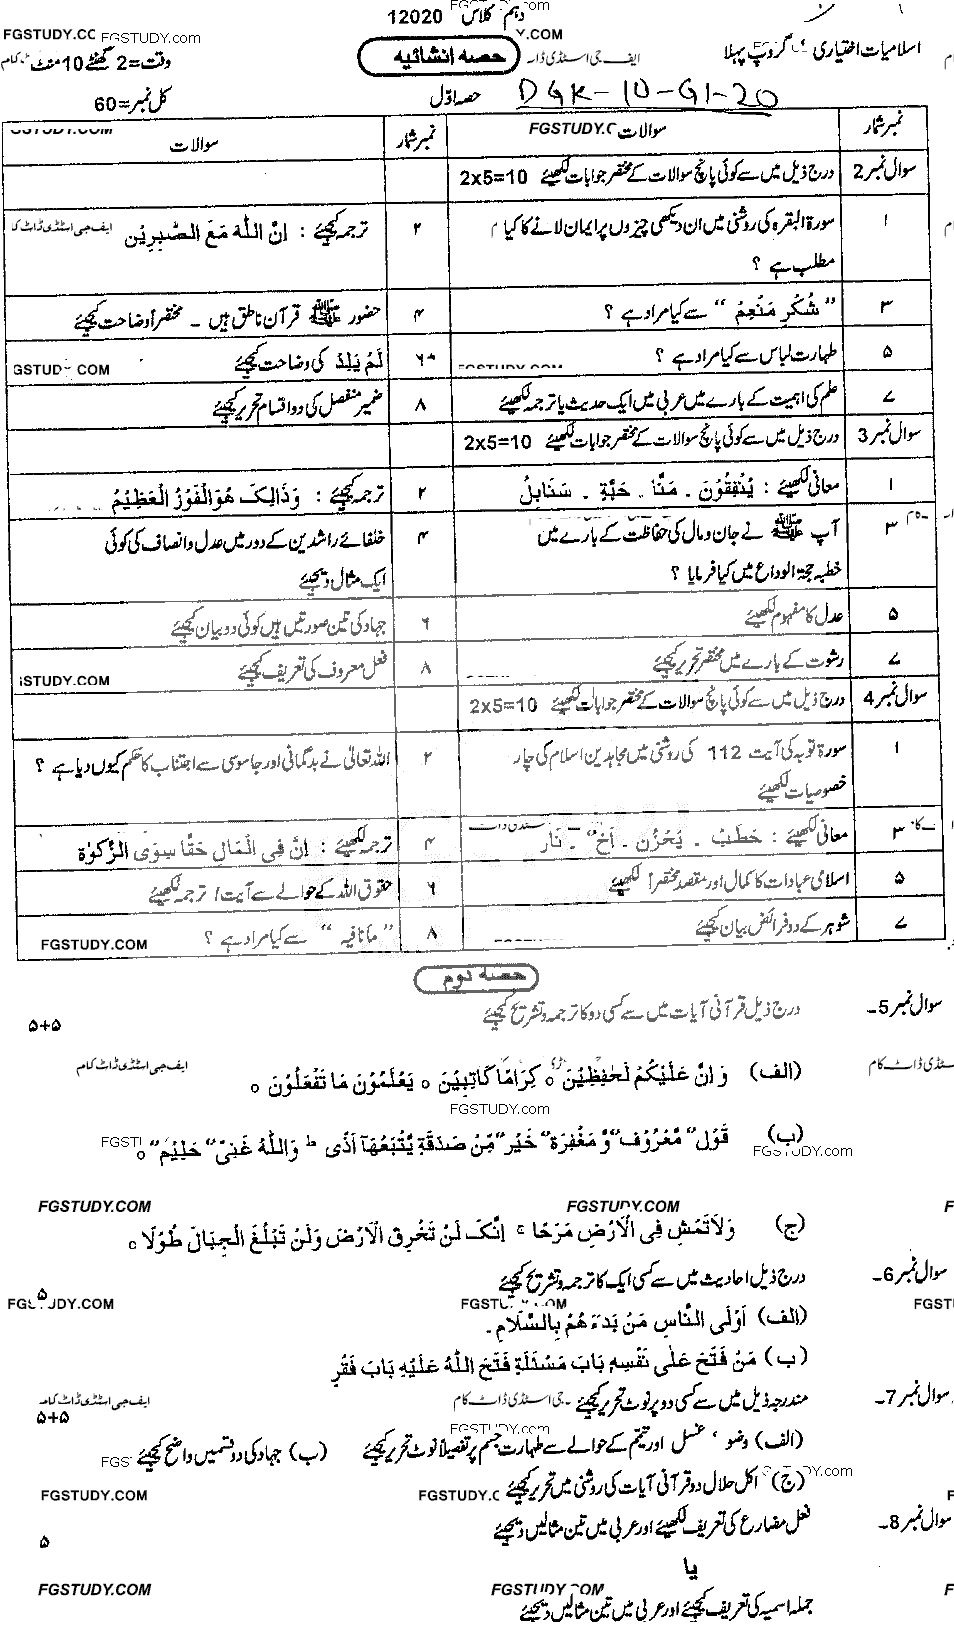 دہم کلاس 12020
اسلامیات اختیاری گروپ پہلا
حصہ انشائیہ
وقت=2 گھنٹے 10 منٹ
DGK-10-G1-20
حصہ اوّل
کل نمبر=60
نمبر شمار سوالات نمبر شمار سوالات
سوال نمبر 2 درج ذیل میں سے کوئی پانچ سوالات کے مختصر جوابات لکھیئے 2x5=10
۱ سورۃ البقرہ کی روشنی میں ان دیکھی چیزوں پر ایمان لانے کا کیا
مطلب ہے ؟
۲ ترجمہ کیجیئے : اِنَّ اللّٰهَ مَعَ الصّٰبِرِیْن
۳ “شُکْرِ مَنْعِمْ” سے کیا مراد ہے ؟
۴ حضور ﷺ قرآن ناطق ہیں - مختصراً وضاحت کیجیئے
۵ طہارت لباس سے کیا مراد ہے ؟
۶ لَمْ یَلِدْ کی وضاحت کیجیئے
۷ علم کی اہمیت کے بارے میں عربی میں ایک حدیث یا ترجمہ لکھیئے
۸ ضمیر منفصل کی دو اقسام تحریر کیجیئے
سوال نمبر 3 درج ذیل میں سے کوئی پانچ سوالات کے مختصر جوابات لکھیئے 2x5=10
۱ معانی لکھیئے : یُنْفِقُوْنَ ۔ مَنًّا ۔ حَبَّةٍ ۔ سَنَابِلُ
۲ ترجمہ کیجیئے : وَذَالِکَ هُوَالْفَوْزُ الْعَظِیْمُ
۳ آپ ﷺ نے جان و مال کی حفاظت کے بارے میں
خطبہ حجۃ الوداع میں کیا فرمایا ؟
۴ خلفائے راشدین کے دور میں عدل و انصاف کی کوئی
ایک مثال دیجیئے
۵ عدل کا مفہوم لکھیئے
۶ جہاد کی تین صورتیں ہیں کوئی دو بیان کیجیئے
۷ رشوت کے بارے میں مختصر تحریر کیجیئے
۸ فعل معروف کی تعریف کیجیئے
سوال نمبر 4 درج ذیل میں سے کوئی پانچ سوالات کے مختصر جوابات لکھیئے 2x5=10
۱ سورۃ توبہ کی آیت 112 کی روشنی میں مجاہدین اسلام کی چار
خصوصیات لکھیئے
۲ اللہ تعالیٰ نے بدگمانی اور جاسوسی سے اجتناب کا حکم کیوں دیا ہے ؟
۳ معانی لکھیئے : حَطَبْ ۔ یَحْزُن ۔ اَخ” ۔ نَار
۴ ترجمہ لکھیئے : اِنَّ فِی الْمَالِ حَقًّا سِوَی الزَّکٰوۃ
۵ اسلامی عبادات کا کمال اور مقصد مختصراً لکھیئے
۶ حقوق اللہ کے حوالے سے آیت / ترجمہ لکھیئے
۷ شوہر کے دو فرائض بیان کیجیئے
۸ “مانافیہ” سے کیا مراد ہے ؟
FGSTUDY.COM
حصہ دوم
سوال نمبر 5- درج ذیل قرآنی آیات میں سے کسی دو کا ترجمہ و تشریح کیجیئے ۵+۵
(الف) وَاِنَّ عَلَیْکُمْ لَحٰفِظِیْنَ ہ کِرَامًا کَاتِبِیْنَ ہ یَعْلَمُوْنَ مَا تَفْعَلُوْنَ ہ
FGSTUDY.com
(ب) قَوْل” مَّعْرُوْف” وَّمَغْفِرَة” خَیْر” مِّنْ صَدَقَةٍ یَّتْبَعُهَآ اَذًی ط وَاللّٰهُ غَنِیّ” حَلِیْم” ہ
FGSTUDY.COM FGSTUDY.COM
(ج) وَلَا تَمْشِ فِی الْاَرْضِ مَرَحًا ج اِنَّکَ لَنْ تَخْرِقَ الْاَرْضَ وَلَنْ تَبْلُغَ الْجِبَالَ طُوْلًا ہ
سوال نمبر 6- درج ذیل احادیث میں سے کسی ایک کا ترجمہ و تشریح کیجیئے ۵
(الف) اَوْلَی النَّاسِ مَنْ بَدَءَ هُمْ بِالسَّلَامِ۔
(ب) مَنْ فَتَحَ عَلٰی نَفْسِهٖ بَابَ مَسْئَلَةٍ فَتَحَ اللّٰهُ عَلَیْهِ بَابَ فَقْرٍ
سوال نمبر 7- مندرجہ ذیل میں سے کسی دو پر نوٹ تحریر کیجیئے ۵+۵
(الف) وضو ، غسل اور تیمم کے حوالے سے طہارت جسم پر تفصیلاً نوٹ تحریر کیجیئے (ب) جہاد کی دو قسمیں واضح کیجیئے
(ج) اکل حلال دو قرآنی آیات کی روشنی میں تحریر کیجیئے
سوال نمبر 8- فعل مضارع کی تعریف لکھیئے اور عربی میں تین مثالیں دیجیئے ۵
یا
FGSTUDY.COM
جملہ اسمیہ کی تعریف کیجیئے اور عربی میں تین مثالیں دیجیئے